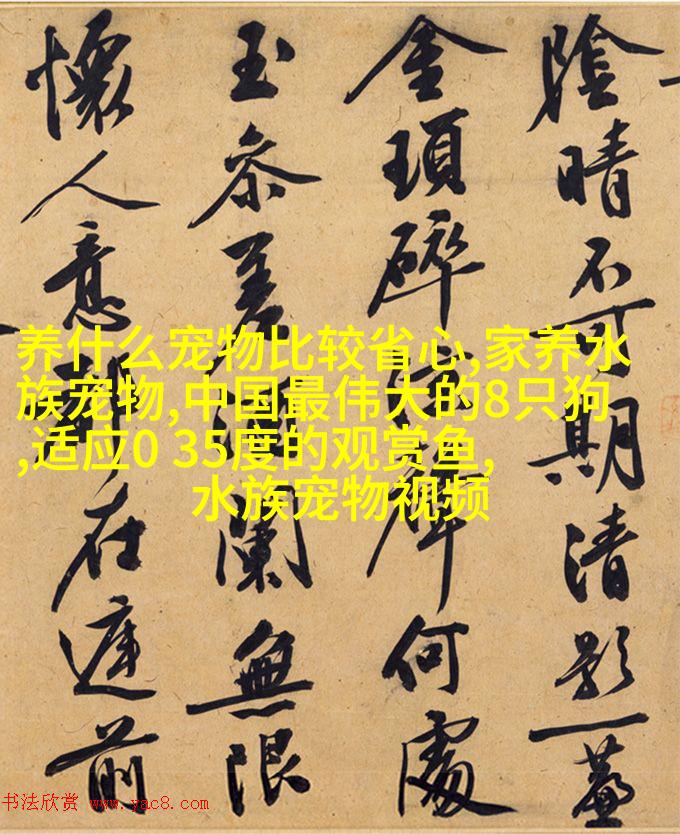 陰晴不可期清影一
金瑣碎聲何處
玉參差闌無限
懷人意在前
养什么宠物比较省心,家养水
族宠物,中国最伟大的8只狗
,适应0 35度的观赏鱼,
水族宠物视频
书法欣赏 www.yac8.com